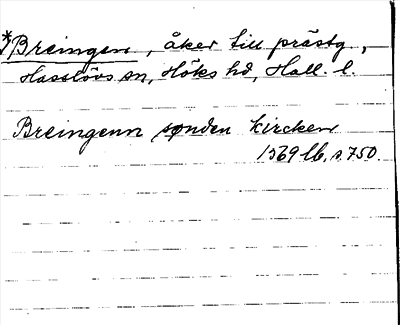 *Breingen, åker till prästg.,
Hasslövs sn, Höks hd, Hall. l.
Breingenn sønden kircken
1569 lb. s. 750.